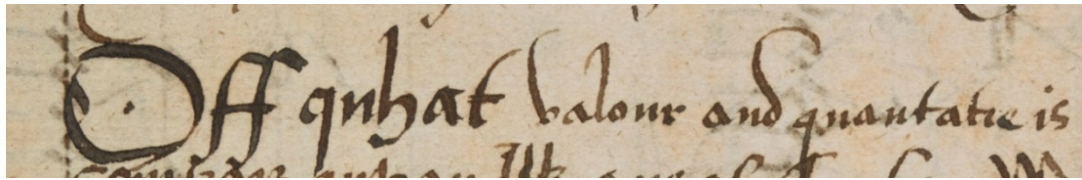 Off quhat valour and quantatie is